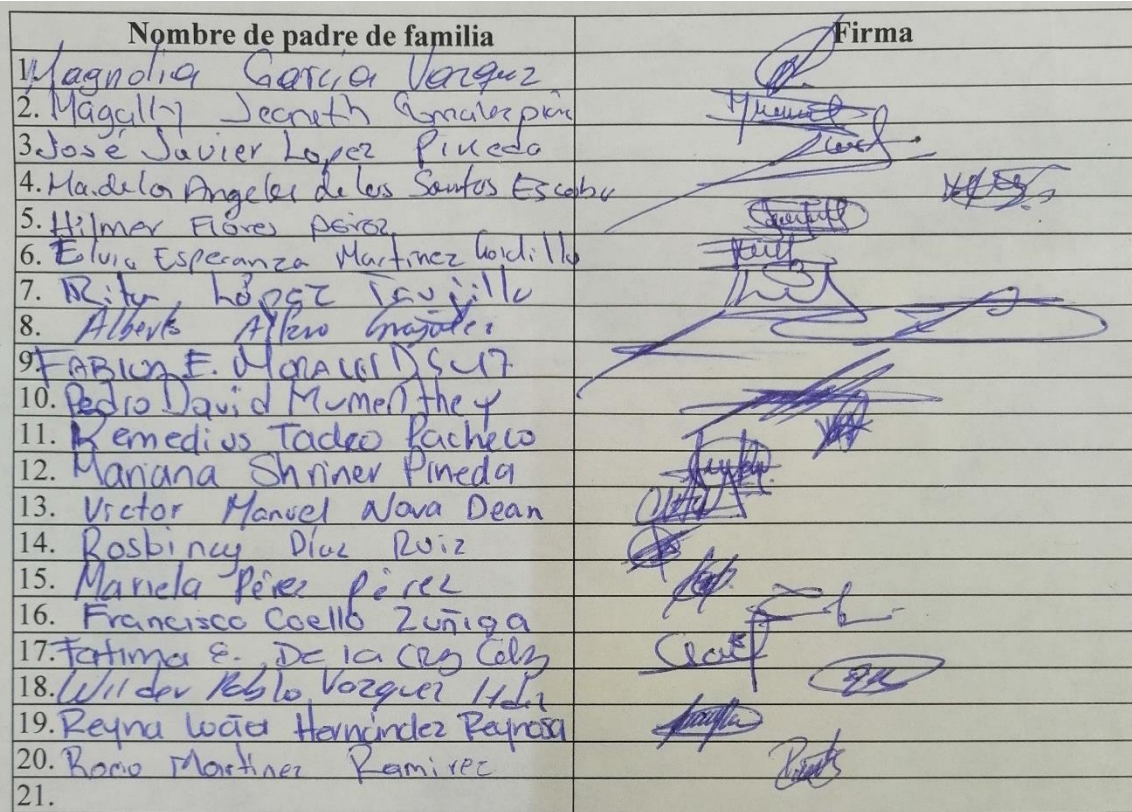 Nombre de padre de familia Firma
1. Magnolia García Vazquez
2. Magally Jeaneth
3. José Javier Lopez Pineda
4. Ma. de los Angeles de los Santos Escobar
5. Hilmer Flores Pérez
6. Elvia Esperanza Martinez Gordillo
7. Rita López Trujillo
8. Alberto Grajales
9. FABIOLA E.
10. Pedro David Mumenthey
11. Remedios Tadeo Pacheco
12. Mariana Shriner Pineda
13. Victor Manuel Nava Dean
14. Rosbincy Díaz Ruiz
15. Mariela Pérez Pérez
16. Francisco Coello Zuñiga
17. Fatima E. De la Cruz
18. Wilder Pablo Vazquez Hdz
19. Reyna Hernández Reynosa
20. Rocio Martinez Ramirez
21.